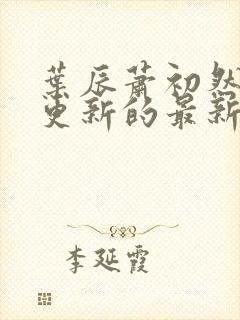 葉辰蕭初然
更新的最新
李延霞